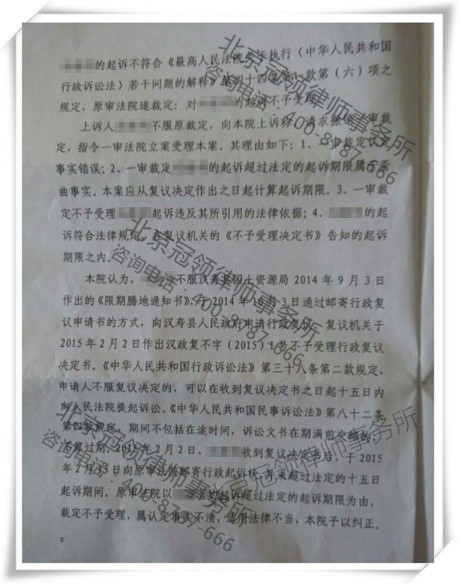 的起诉不符合《最高人民法院关于执行〈中华人民共和国
行政诉讼法〉若干问题的解释》第四十四条第一款第（六）项之
规定，原审法院遂裁定：对 的起诉不予受理。
上诉人 不服原裁定，向本院上诉称，请求撤销一审裁
定，指令一审法院立案受理本案。其理由如下：1、一审裁定
事实错误；2、一审裁定 的起诉超过法定的起诉期限属
曲事实。本案应从复议决定作出之日起计算起诉期限。3、一审裁
定不予受理 起诉违反其所引用的法律依据；4、 的起
诉符合法律规定，在复议机关的《不予受理决定书》告知的起诉
期限之内。
本院认为， 不服汉寿县国土资源局 2014 年 9 月 3 日
作出的《限期腾地通知书》，于 2014 年 10 月 3 日通过邮寄行政复
议申请书的方式，向汉寿县人民政府申请行政复议，复议机关于
2015 年 2 月 2 日作出汉政复不字（2015）1 号不予受理行政复议
决定书。《中华人民共和国行政诉讼法》第三十八条第二款规定，
申请人不服复议决定的，可以在收到复议决定书之日起十五日内
向人民法院提起诉讼。《中华人民共和国民事诉讼法》第八十二条
第四款规定：期间不包括在途时间，诉讼文书在期满前交邮的，
不算过期。2015 年 2 月 2 日， 收到复议决定书后，于 2015
年 2 月 13 日向原审法院邮寄行政起诉状，并未超过法定的十五日
起诉期间。原审法院以 的起诉超过法定的起诉期限为由，
裁定不予受理，属认定事实不清，适用法律不当，本院予以纠正。
2
北京冠领律师事务所
咨询电话：400-8787-666
北京冠领律师事务所
咨询电话：400-8787-666
北京冠领律师事务所
咨询电话：400-8787-666